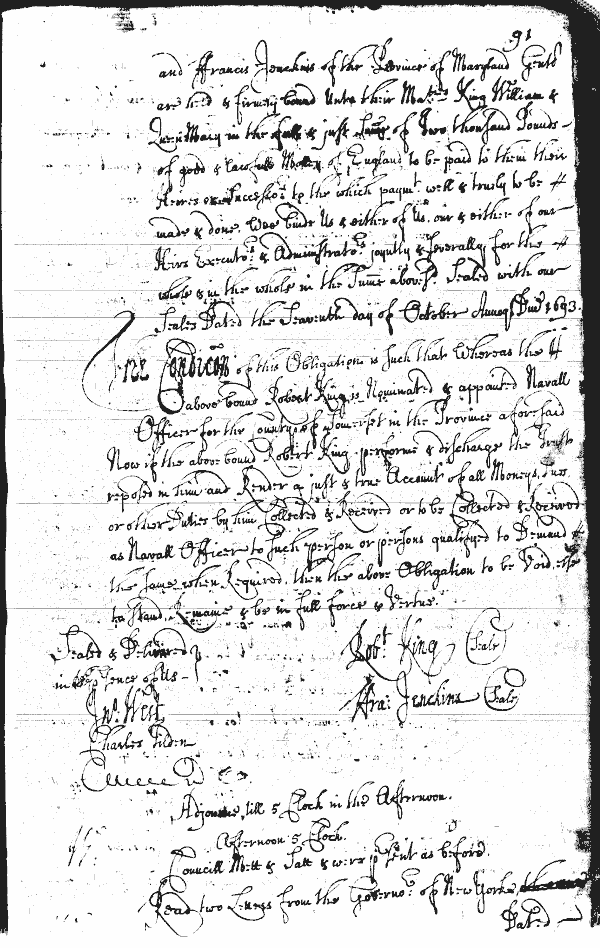 91
and Ffrancis Jenckins of the Province of Maryland Gentn
are held & firmly bound Unto their Maties King William &
Queen Mary in the full & just Sume of Two thousand Pounds
of good & lawfull Money of England to be paid to them their
Heires or Successors to the which paymt well & truly to be
made & done, Wee binde Us & either of Us our & either of our
Heirs Executors & Administratos joyntly & severally for the
whole & in the whole in the Sume abovesd Sealed with our
Seales Dated the Seaventh day of October Annoq Dni 1693.
The Condicon of this Obligation is such that Whereas the
above bound Robert King is Nominated & appointed Navall
Officer for the County of Somerset in the Province aforesaid
Now if the above bound Robert King performe & discharge the Trust
reposed in him and Render a just & true Account of all Moneys, Dues
or other Duties by him Collected & Received or to be Collected & Received
as Navall Officer to such person or persons qualifyed to Demand
the same when Required, then the above Obligation to be Void, else
to stand, Remaine & be in full force & Vertue.
Sealed & Delivered
in the psence of Us
Robt King (Seale)
Jno West
Ffra: Jenckins (Seale)
Charles Tilden
Adjourne till 5 Clock in the Afternoon.
Afternoon 5 Clock.
Councill Mett & Satt & were psent as before.
Read two Letters from the Governor of New Yorke
Dated